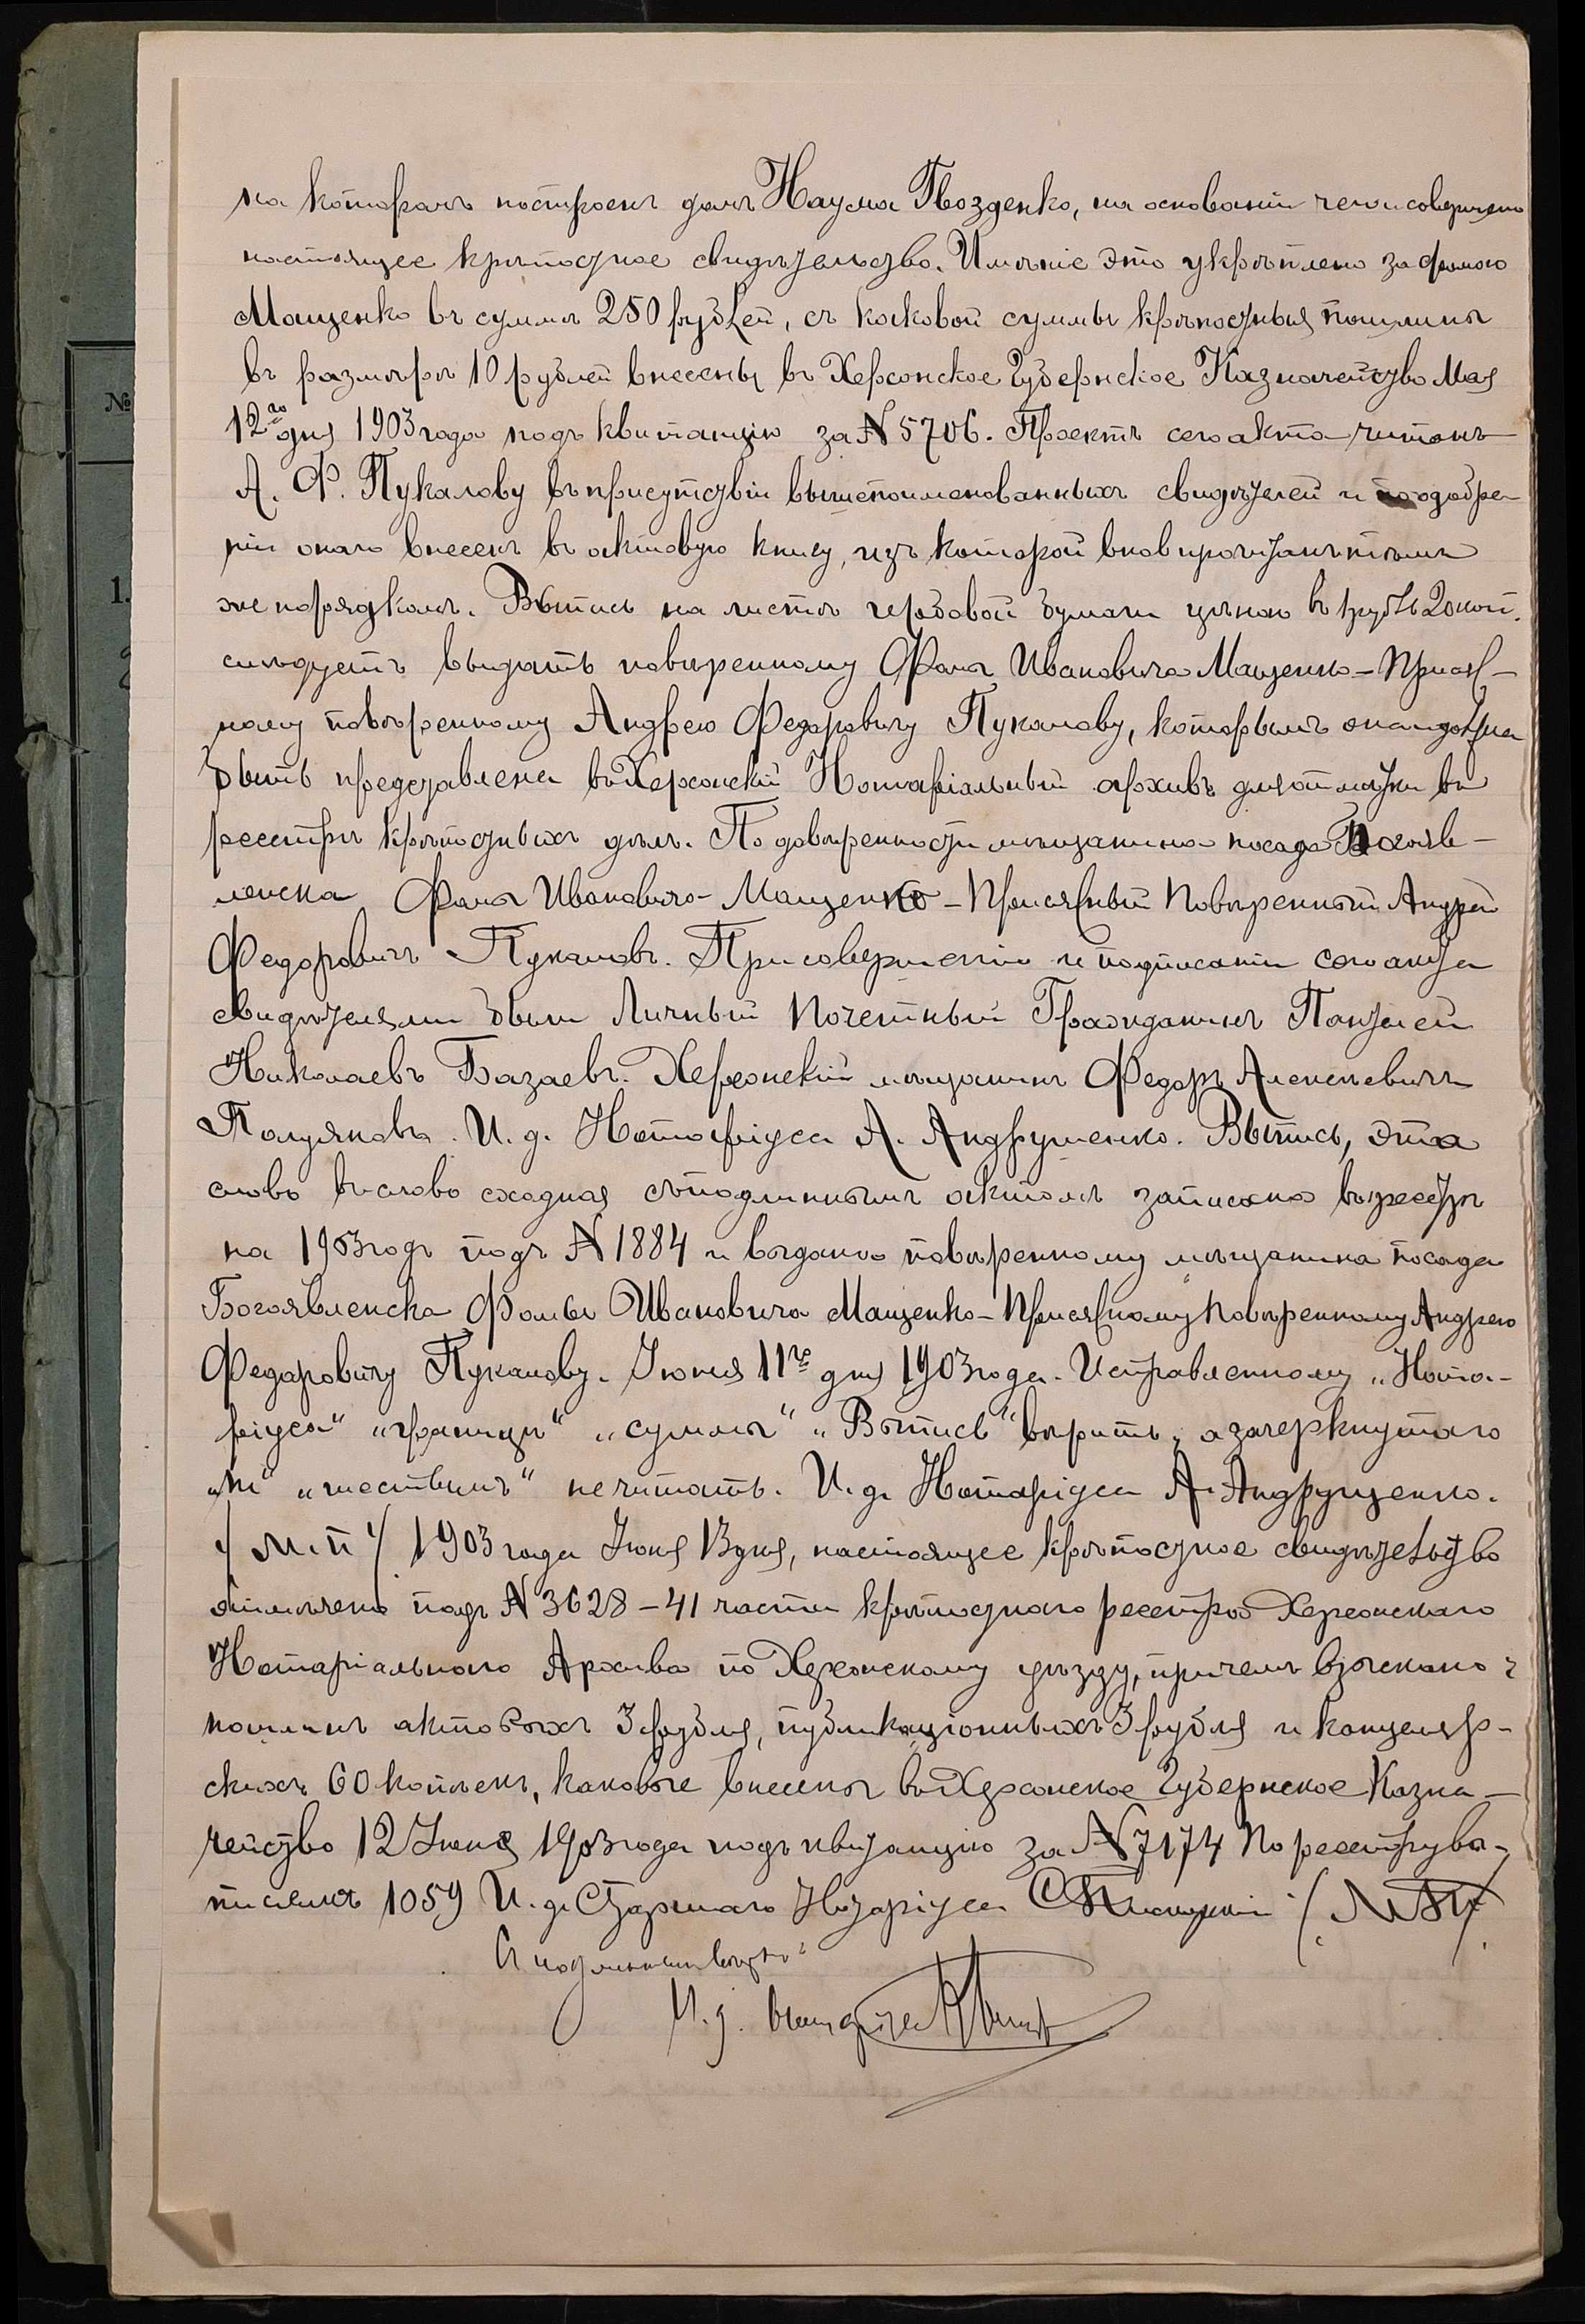 на которомъ построенъ домъ Наума Гвозденко, на основаніи чего и совершено
настоящее крѣпостное свидѣтельство. Имѣніе это укрѣплено за Фомою
Мащенко въ суммѣ 250 рублей, съ каковой суммы крѣпостныя пошлины
въ размѣрѣ 10 рублей внесены въ Херсонское Губернское Казначейство Мая
12го дня 1903 года подъ квитанцію за № 5706. Проектъ сего акта читанъ
А. Ф. Пукалову въ присутствіи вышепоименованныхъ свидѣтелей и по одобре-
ніи онаго внесенъ въ актовую книгу, изъ которой вновь прочитанъ тѣмъ
же порядкомъ. Выпись на листѣ гербовой бумаги цѣною въ 1 рубль 20 коп.
слѣдуетъ выдать повѣренному Фомы Ивановича Мащенко - Присяж-
ному повѣренному Андрею Федоровичу Пукалову, которымъ она должна
быть представлена въ Херсонскій Нотаріальный архивъ для отмѣтки въ
реестрѣ крѣпостныхъ дѣлъ. По довѣренности мѣщанина посада Богояв-
ленска Фомы Ивановича Мащенко - Присяжный Повѣренный Андрей
Федоровичъ Пукаловъ. При совершеніи и подписаніи сего акта
свидѣтелями были Личный Почетный Гражданинъ Пантелей
Николаевъ Базаевъ. Херсонскій мѣщанинъ Федоръ Алексѣевичъ
Полуяновъ. И. д. Нотаріуса А. Андрущенко. Выпись, эта
слово въ слово сходная съ подлиннымъ актомъ записана въ реестръ
на 1903 годъ подъ № 1884 и выдана повѣренному мѣщанина посада
Богоявленска Фомы Ивановича Мащенко - Присяжному Повѣренному Андрею
Федоровичу Пукалову. Іюня 11го дня 1903 года. Исправленному „Нота-
ріуса“ „границы“ „суммы“ „Выпись“ вѣрить, а зачеркнутаго
„ні“ „шестымъ“ не читать. И. д. Нотаріуса А. Андрущенко.
/М. П/ 1903 года Іюня 13 дня, настоящее крѣпостное свидѣтельство
отмѣчено подъ № 3628 - 41 части крѣпостнаго реестра Херсонскаго
Нотаріальнаго Архива по Херсонскому уѣзду, причемъ взыскано
пошлинъ актовыхъ 3 рубля, публикаціонныхъ 3 рубля и канцеляр-
скихъ 60 копѣекъ, каковые внесены въ Херсонское Губернское Казна-
чейство 12 Іюня 1903 года подъ квитанцію за № 7174 По реестру вы-
писямъ 1059 И. д. Старшаго Нотаріуса /М П/
Съ подлиннымъ вѣрно:
И. д. Нотаріуса